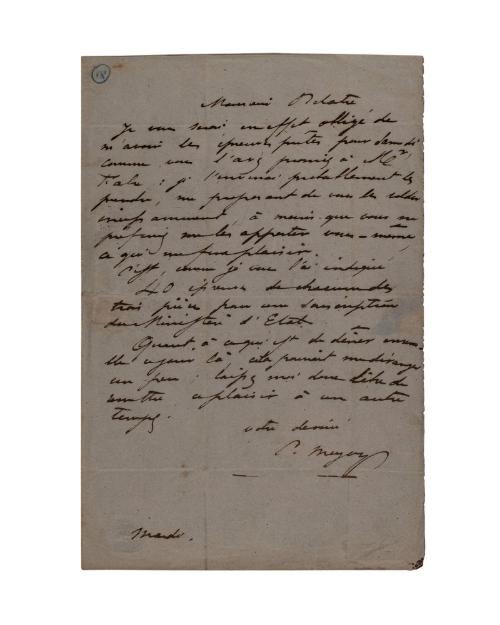 Monsieur Delatre
Je vous serai en effet obligé de
m'avoir les épreuves prêtes pour samedi
comme vous l'avez promis à Mr
: j'enverrai probablement les
prendre, me proposant de vous les solder
incessamment, à moins que vous ne
préfériez me les apporter vous-même,
ce qui me fera plaisir.
C'est, comme je vous l'ai indiqué
40 épreuves de chacune des
trois pièces pour une souscription
du Ministère d'Etat.
Quant à ce qui est de dîner
ce jour là, cela pourrait me déranger
un peu : laissez moi donc libre de
remettre ce plaisir à un autre
temps.
votre dévoué
C. Meryon
Mardi.